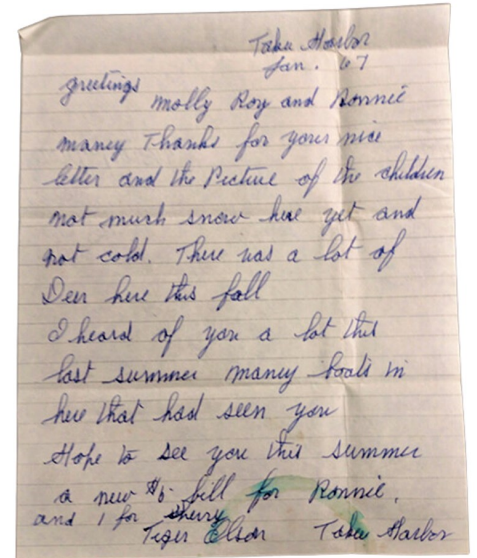 Taku Harbor
Jan. 67
greetings
Molly Roy and Ronnie
maney Thanks for your nice
letter and the Picture of the children
not much snow here yet and
not cold. There was a lot of
Deer here this fall
I heard of you a lot this
last summer maney boats in
here that had seen you
Hope to see you this summer
a new $ bill for Ronnie,
and 1 for Sherry
Tiger Olson Taku Harbor